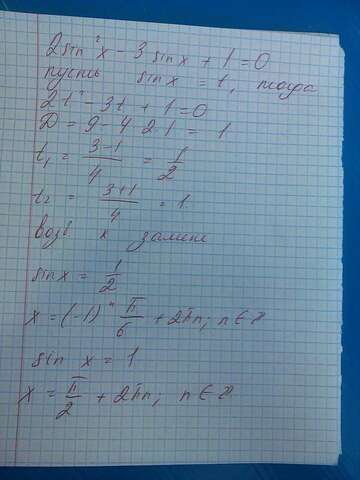 2sin²x - 3sinx + 1 = 0
пусть sinx = t, тогда
2t² - 3t + 1 = 0
D = 9 - 4·2·1 = 1
t₁ = (3-1)/4 = 1/2
t₂ = (3+1)/4 = 1
возв к замене
sinx = 1/2
x = (-1)ⁿ π/6 + 2πn; n ∈ Z
sin x = 1
x = π/2 + 2πn; n ∈ Z